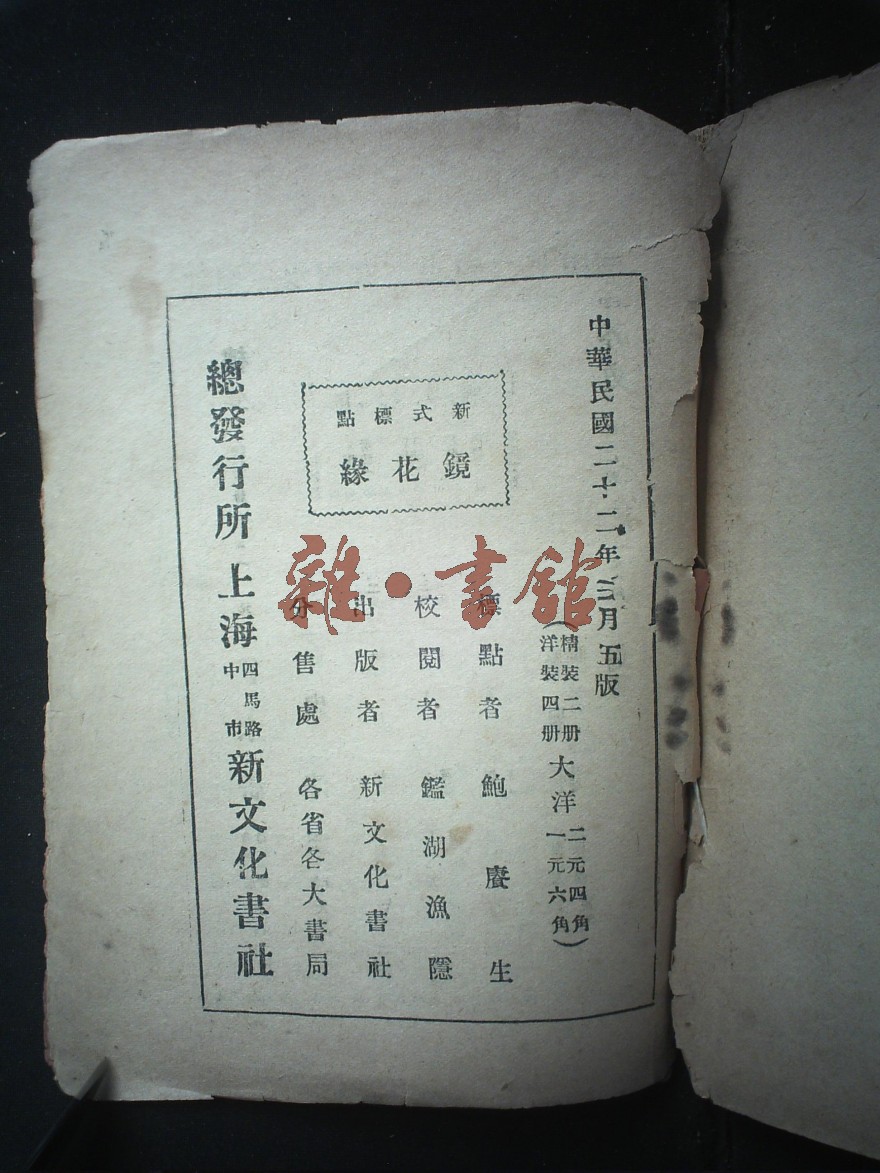 中華民國二十二年三月五版
(精裝二册 洋裝四册 大洋 二元四角 一元六角)
新式標點
鏡花緣
標點者 鮑賡生
校閱者 鑑湖漁隱
出版者 新文化書社
分售處 各省各大書局
總發行所 上海 四馬路中市 新文化書社
雜·書館